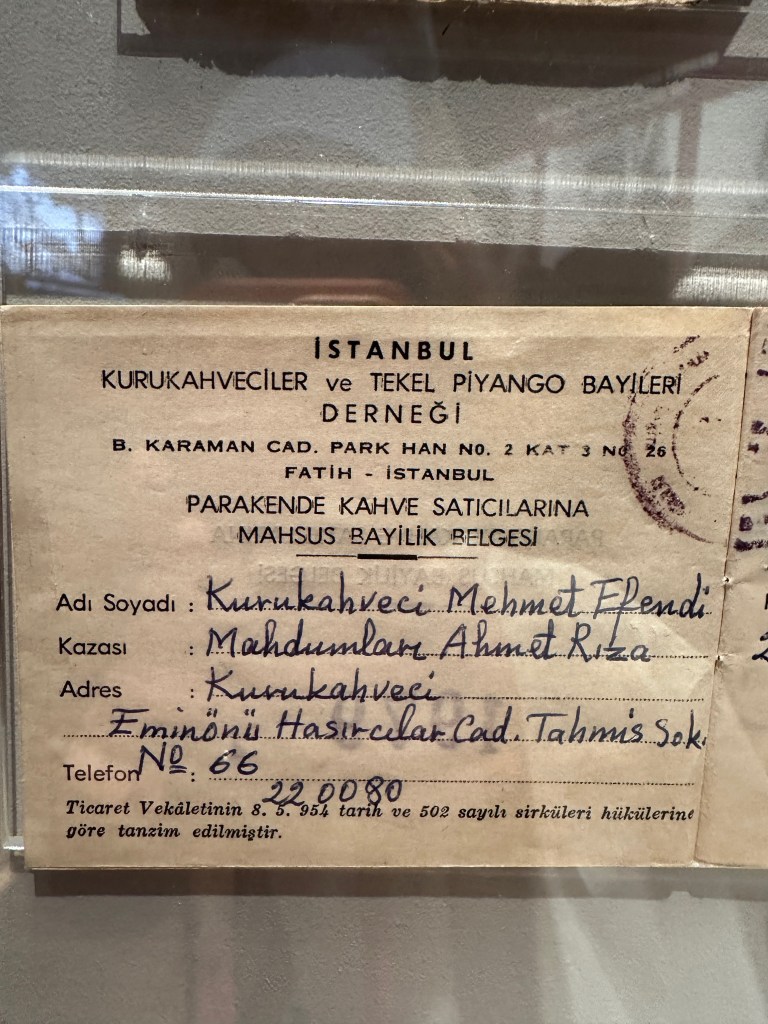 İSTANBUL
KURUKAHVECİLER ve TEKEL PİYANGO BAYİLERİ
DERNEĞİ
B. KARAMAN CAD. PARK HAN NO. 2 KAT 3 NO 26
FATİH - İSTANBUL
PARAKENDE KAHVE SATICILARINA
MAHSUS BAYİLİK BELGESİ
Adı Soyadı : Kurukahveci Mehmet Efendi
Kazası : Mahdumları Ahmet Rıza
Adres : Kurukahveci
Eminönü Hasırcılar Cad. Tahmis Sok.
Telefon No : 66
22 00 80
Ticaret Vekâletinin 8. 5. 954 tarih ve 502 sayılı sirküleri hükülerine
göre tanzim edilmiştir.